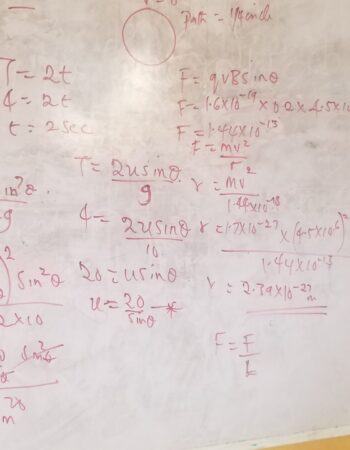 path = 1/4 circle
T = 2t
4 = 2t
t = 2 sec
F = qvBsinθ
F = 1.6×10^-19 × 0.2 × 4.5×10
F = 1.44×10^-13
F = mv²/r
T = 2usinθ/g
r = mv²/1.44×10^-13
4 = 2usinθ/10
r = 1.7×10^-27 × (4.5×10^6)²/1.44×10^-13
20 = usinθ
u = 20/sinθ *
r = 2.39×10^-27 m
F = F/L
in²θ
g
sin²θ
2×10
sin²θ
20
m